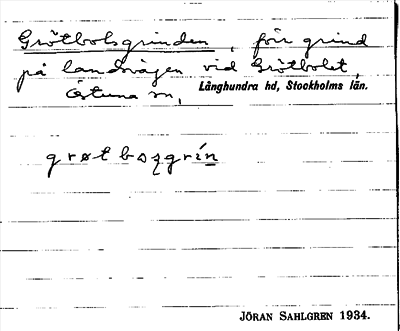 Grötbolsgrinden, för grind
på landsvägen vid Grötbolet,
Östuna sn, Långhundra hd, Stockholms län.
grøtbozgrín
JÖRAN SAHLGREN 1934.